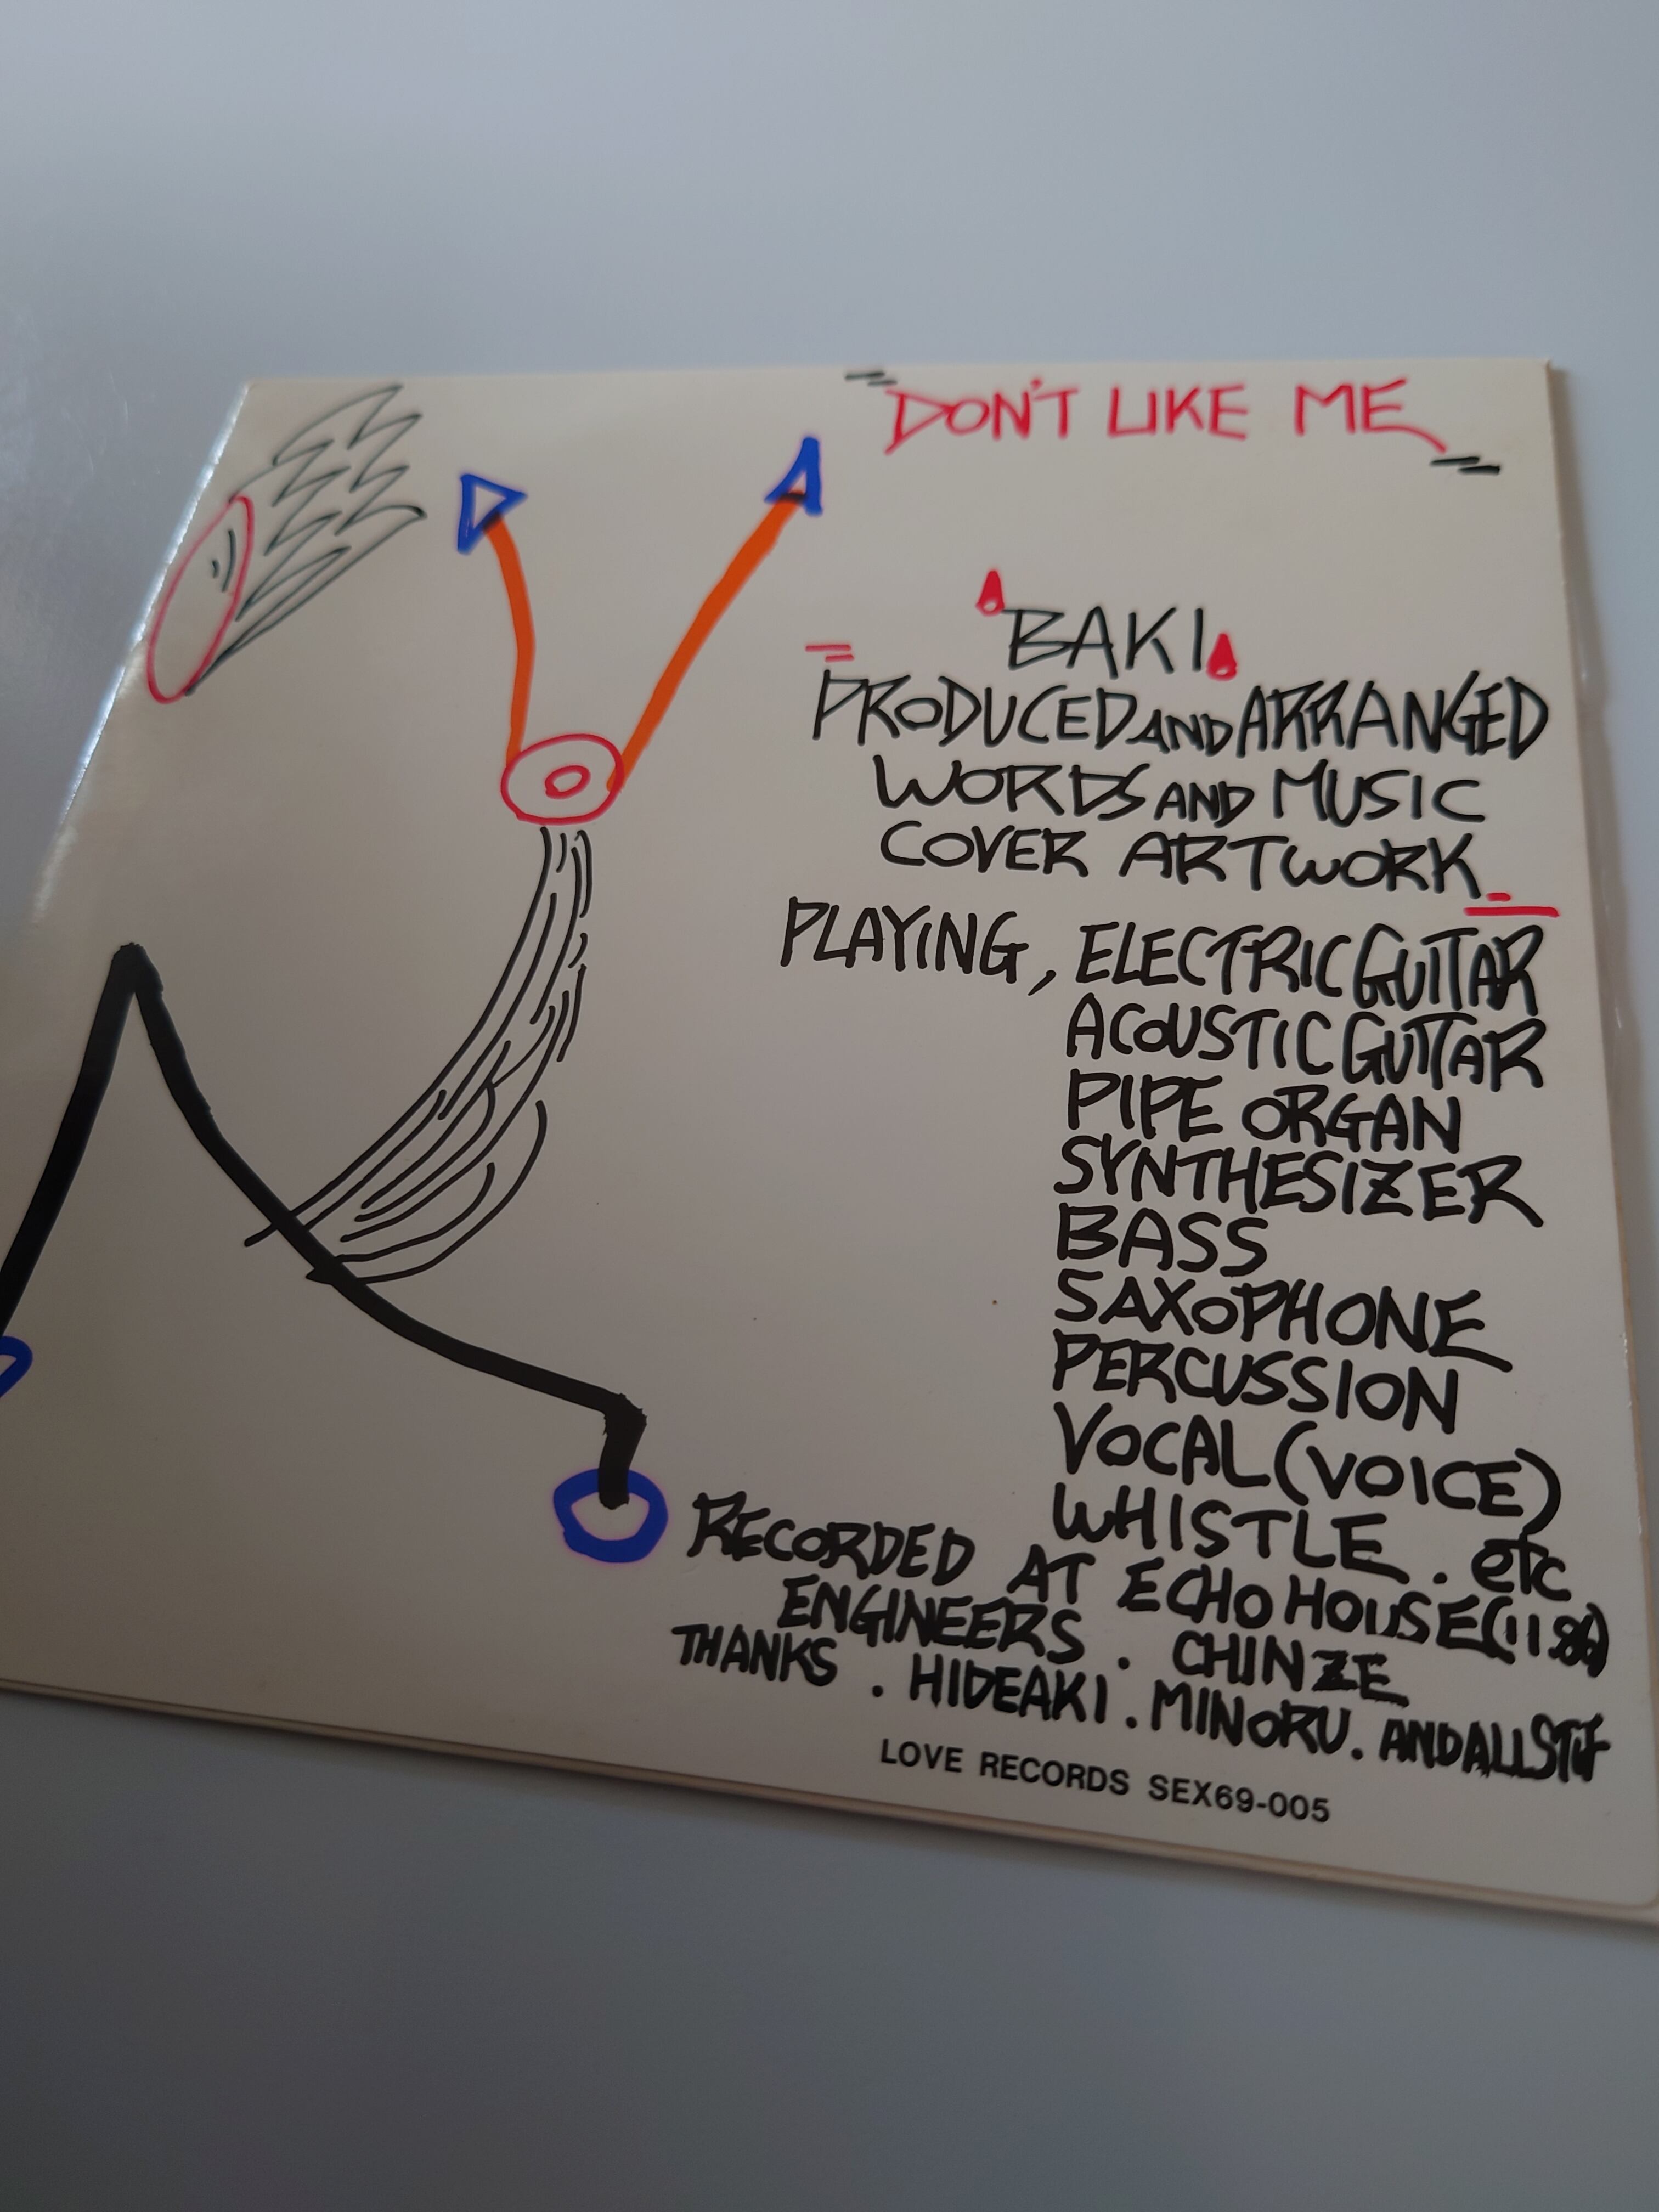 DON'T LIKE ME
BAKI
PRODUCED AND ARRANGED
WORDS AND MUSIC
COVER ARTWORK
PLAYING, ELECTRIC GUITAR
ACOUSTIC GUITAR
PIPE ORGAN
SYNTHESIZER
BASS
SAXOPHONE
PERCUSSION
VOCAL (VOICE)
WHISTLE. etc
RECORDED AT ECHO HOUSE
ENGINEERS. CHINZE
THANKS. HIDEAKI. MINORU. AND ALL
LOVE RECORDS SEX69-005